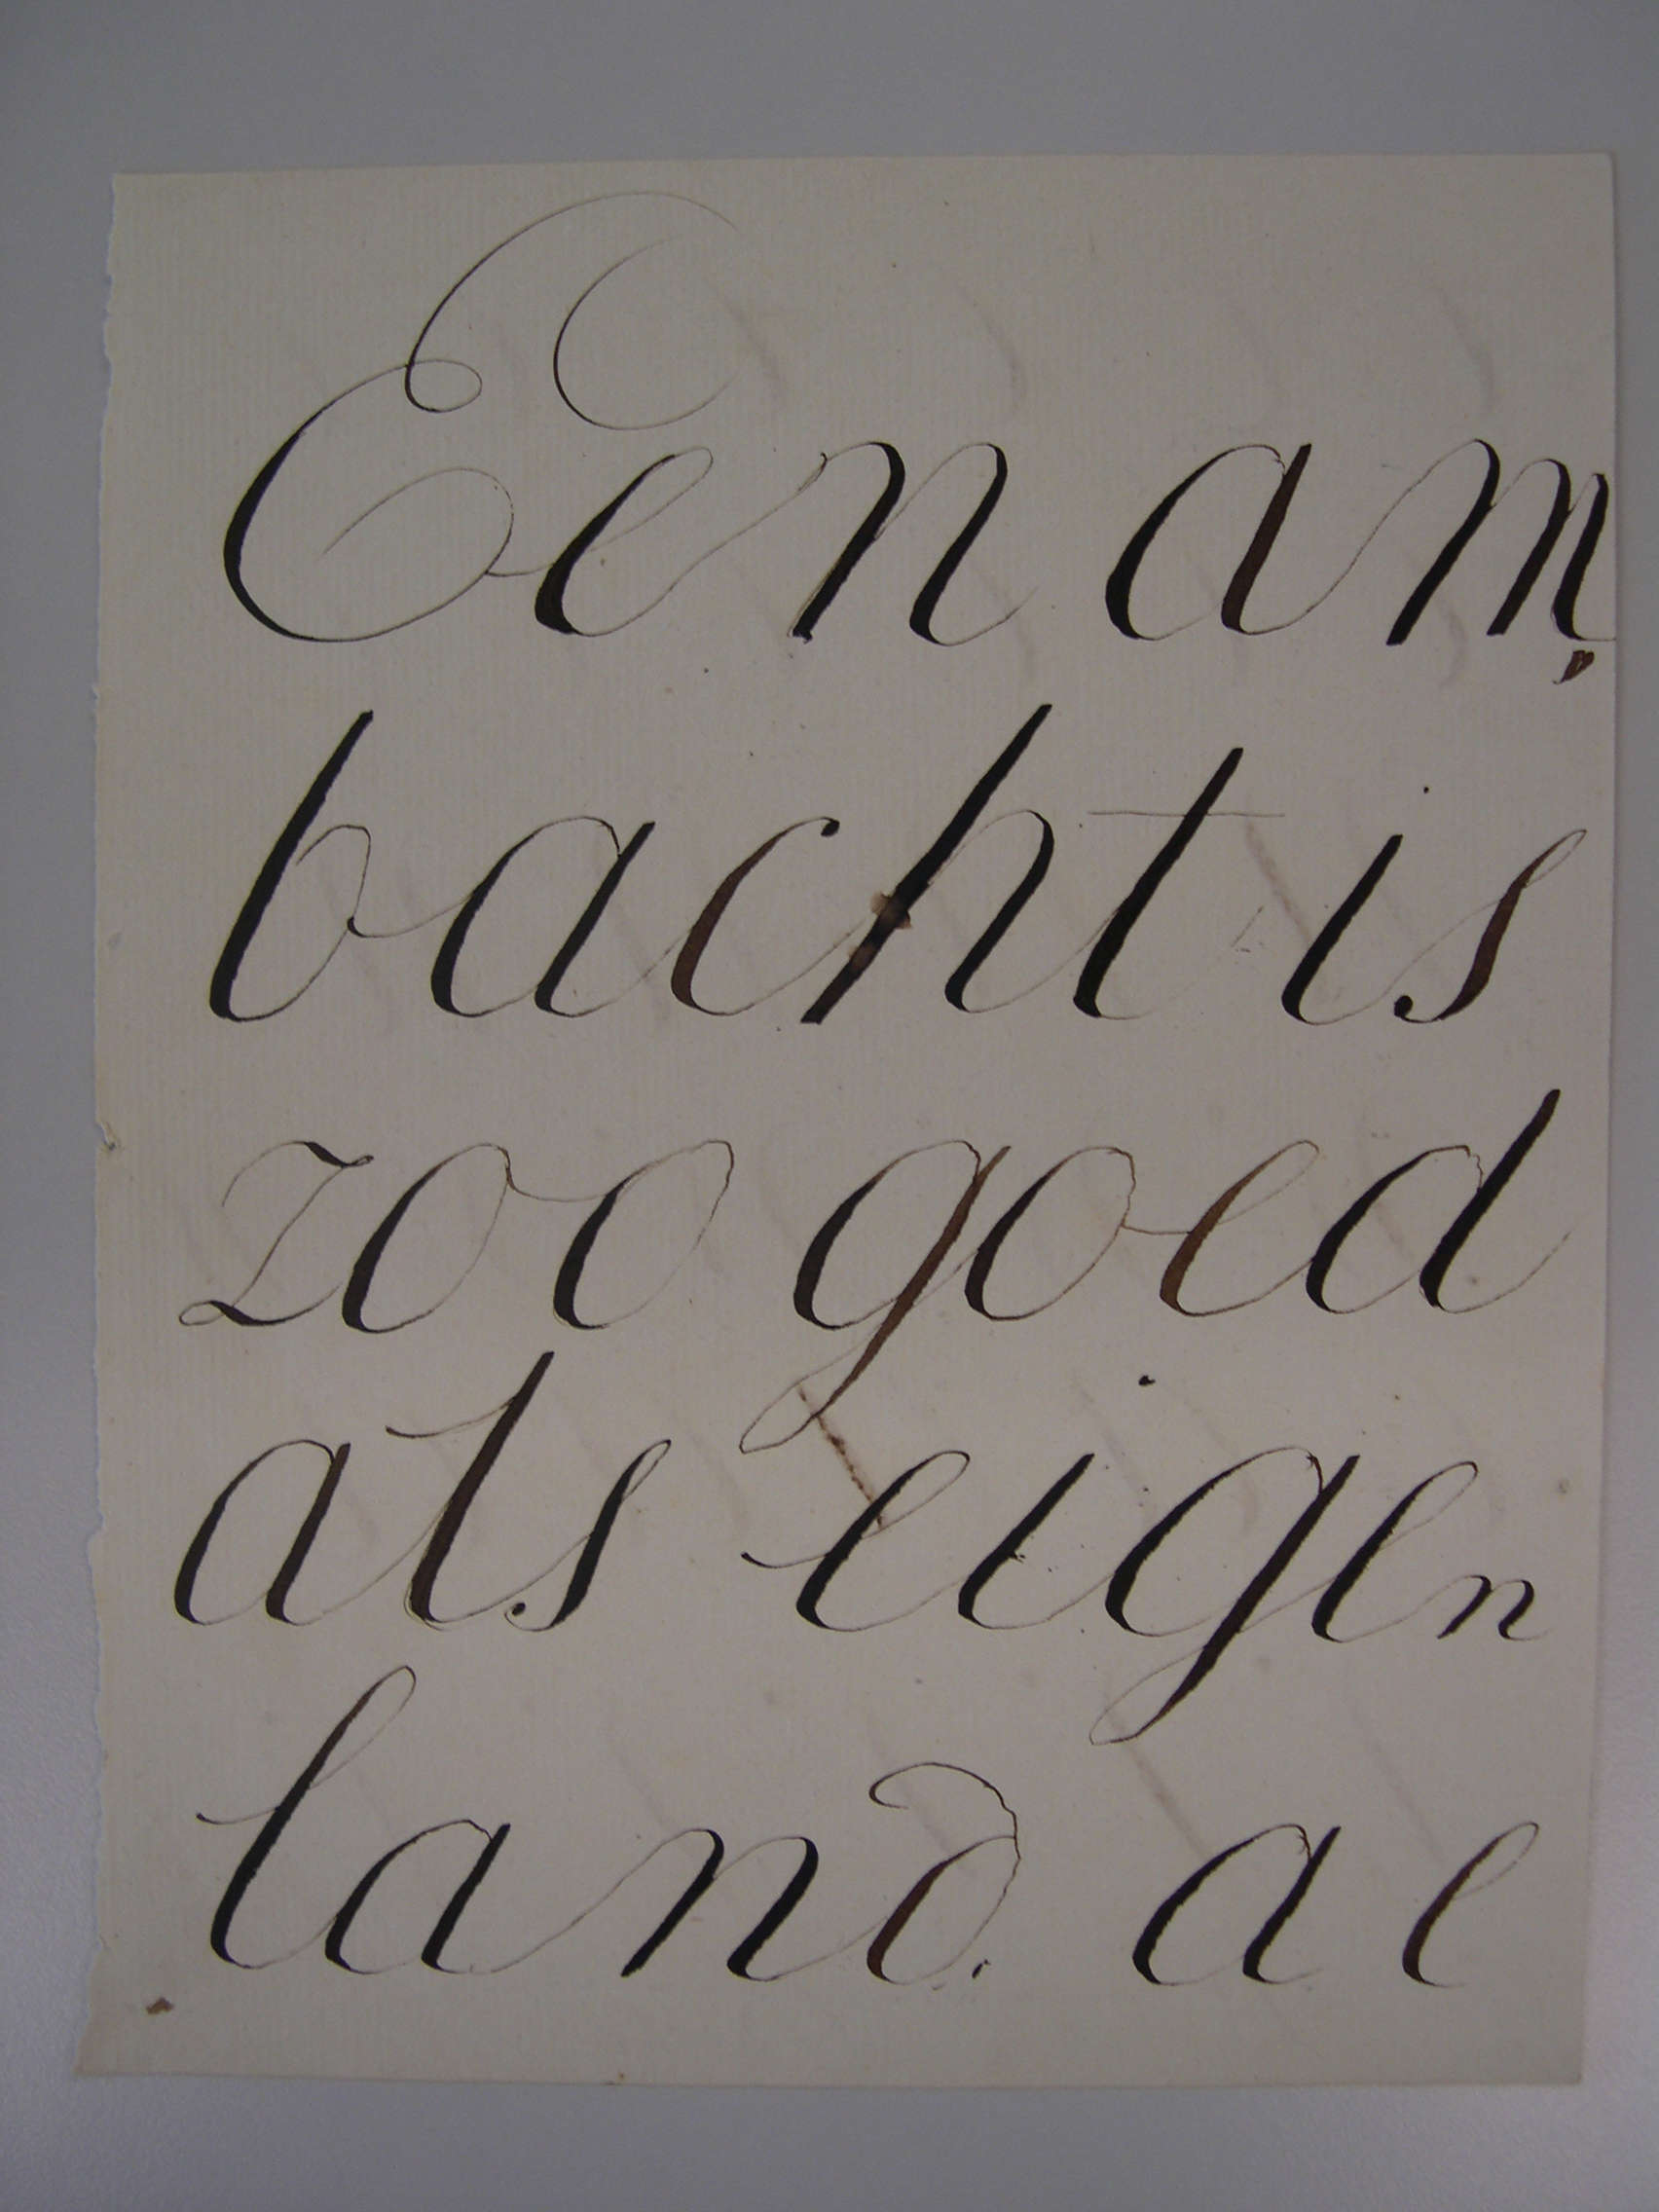 Een am
bacht is
zoo goed
als eigen
land. a e